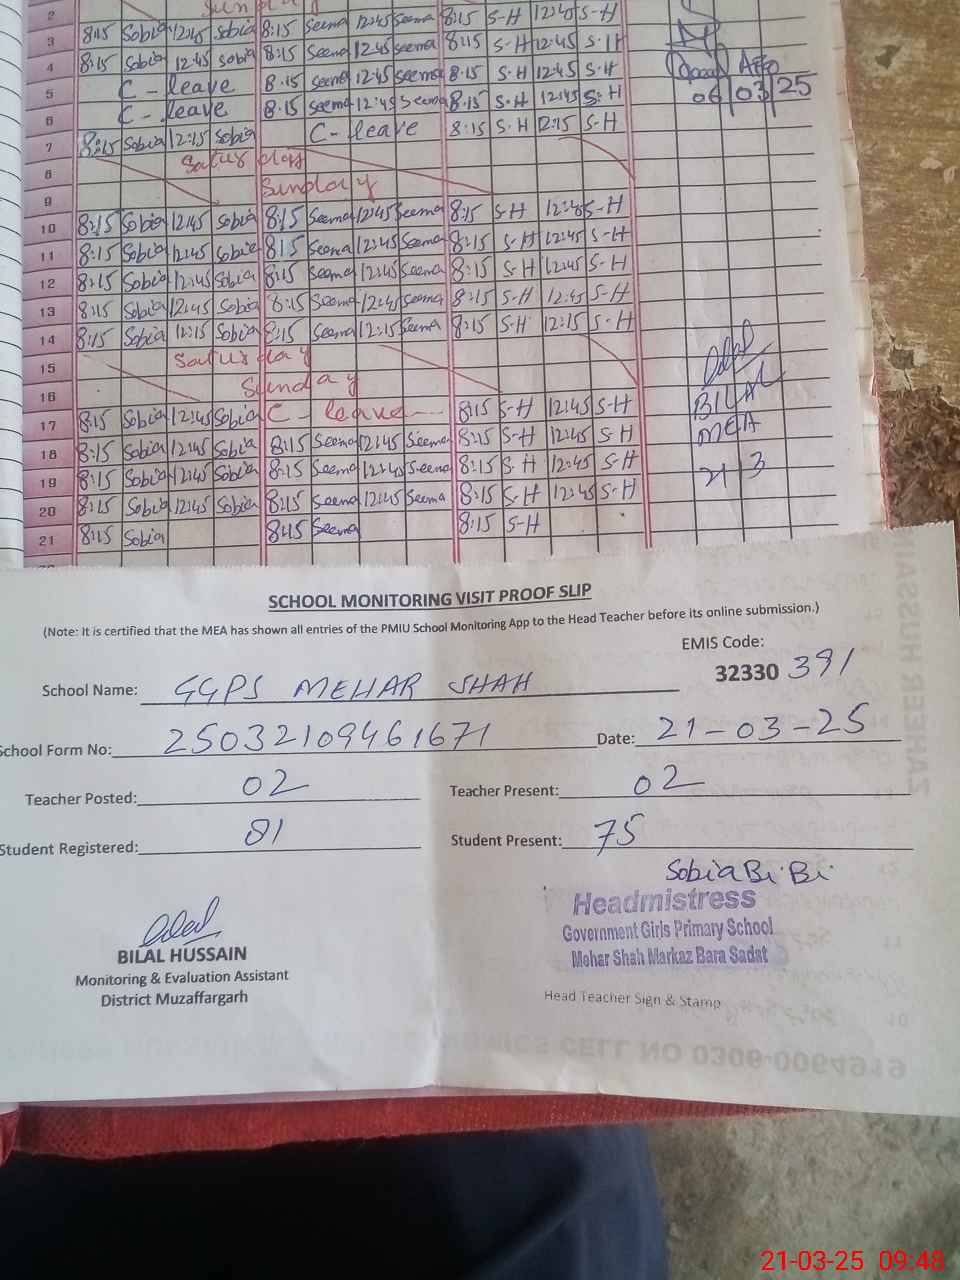 2 Sunday
3 8:15 Sobia 12:45 Sobia 8:15 Seema 12:45 Seema 8:15 S-H 12:45 S-H
4 8:15 Sobia 12:45 Sobia 8:15 Seema 12:45 Seema 8:15 S-H 12:45 S-H
5 C-leave 8:15 Seema 12:45 Seema 8:15 S-H 12:45 S-H
6 C-leave 8:15 Seema 12:45 Seema 8:15 S-H 12:45 S-H
7 8:15 Sobia 12:15 Sobia C-leave 8:15 S-H 12:15 S-H
AEO
06 03 25
8 Saturday
9 Sunday
10 8:15 Sobia 12:45 Sobia 8:15 Seema 12:45 Seema 8:15 S-H 12:45 S-H
11 8:15 Sobia 12:45 Sobia 8:15 Seema 12:45 Seema 8:15 S-H 12:45 S-H
12 8:15 Sobia 12:45 Sobia 8:15 Seema 12:45 Seema 8:15 S-H 12:45 S-H
13 8:15 Sobia 12:45 Sobia 8:15 Seema 12:45 Seema 8:15 S-H 12:45 S-H
14 8:15 Sobia 12:15 Sobia 8:15 Seema 12:15 Seema 8:15 S-H 12:15 S-H
15 Saturday
16 Sunday
17 8:15 Sobia 12:45 Sobia C-leave 8:15 S-H 12:45 S-H
18 8:15 Sobia 12:45 Sobia 8:15 Seema 12:45 Seema 8:15 S-H 12:45 S-H
19 8:15 Sobia 12:45 Sobia 8:15 Seema 12:45 Seema 8:15 S-H 12:45 S-H
20 8:15 Sobia 12:45 Sobia 8:15 Seema 12:45 Seema 8:15 S-H 12:45 S-H
21 8:15 Sobia 8:15 Seema 8:15 S-H
BILAL
MEA
21 3
SCHOOL MONITORING VISIT PROOF SLIP
(Note: It is certified that the MEA has shown all entries of the PMIU School Monitoring App to the Head Teacher before its online submission.)
EMIS Code:
32330 391
School Name: GGPS MEHAR SHAH
School Form No: 25032109461671 Date: 21-03-25
Teacher Posted: 02 Teacher Present: 02
Student Registered: 81 Student Present: 75
Sobia Bi Bi
Headmistress
Government Girls Primary School
Mehar Shah Markaz Bara Sadat
Head Teacher Sign & Stamp
BILAL HUSSAIN
Monitoring & Evaluation Assistant
District Muzaffargarh
ZAHEER HUSSAIN
CELL NO
21-03-25 09:48